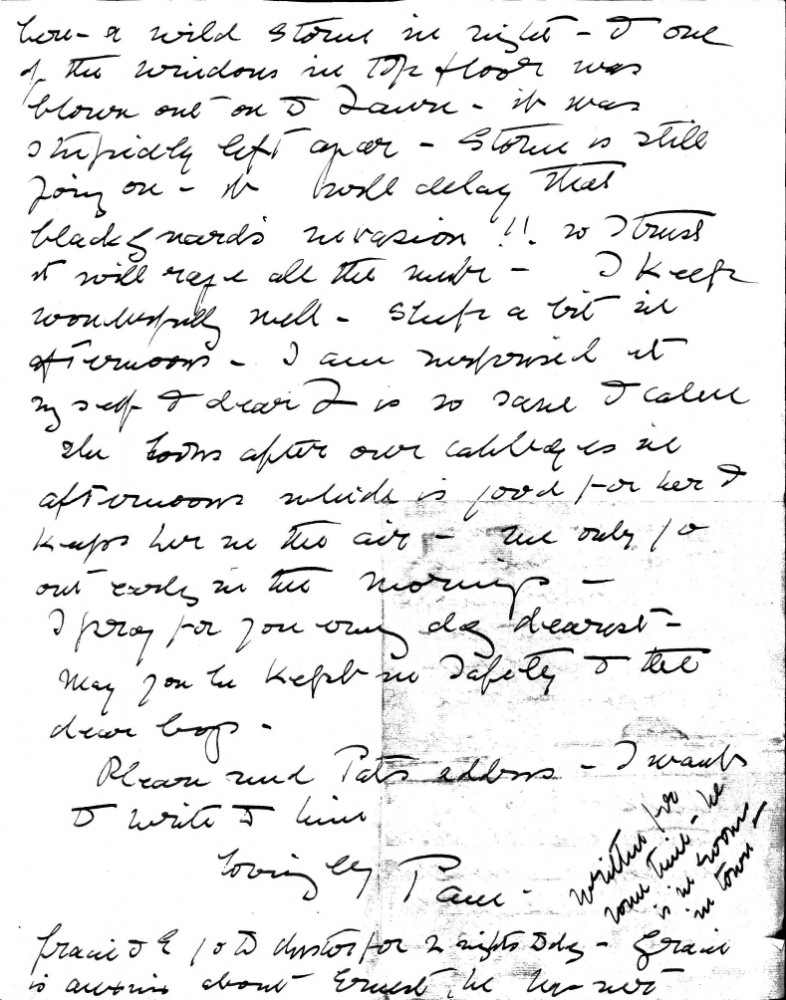 here - a wild storm in night - & one
of the windows in top floor was
blown out on to lawn - it was
stupidly left ajar - storm is still
going on - it will delay that
blackguard's invasion !! so I trust
it will rage all the winter - I keep
wonderfully well - sleep a bit in
afternoons - I am surprised at
myself & dear I is so sane & calm
She looks after our cabbages in
afternoons which is good for her &
keeps her in the air - we only go
out early in the mornings -
I pray for you every day dearest -
May you be kept in safety & the
dear boys -
Please send Pat's address - I want
to write to him
lovingly Pam -
Gracie & E go to doctor for 2 nights today - Gracie
is anxious about Ernest, he has not
written for
some time - he
is in rooms
in town -